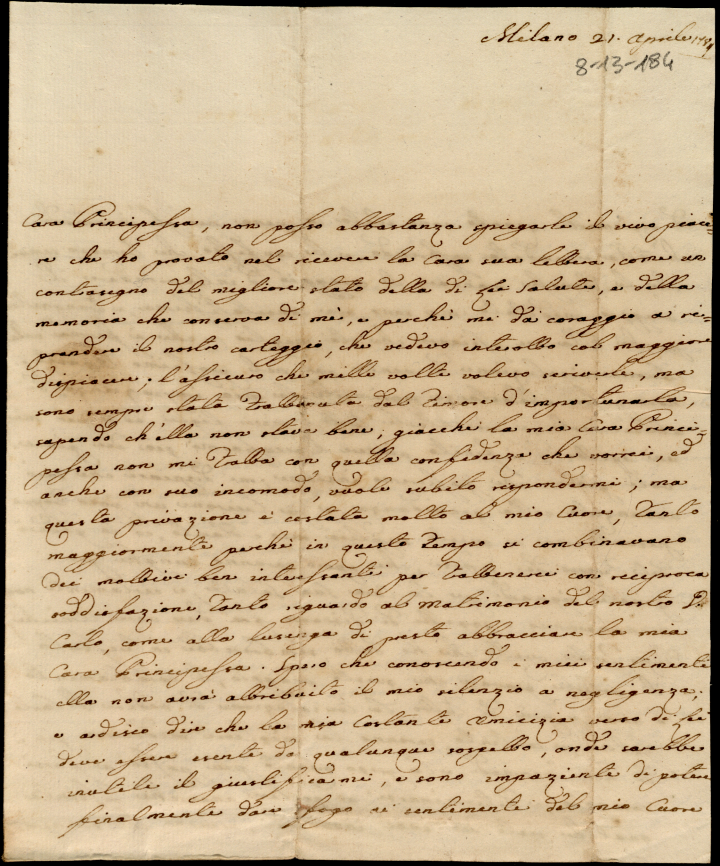 Milano 21. Aprile 1784
8-13-184
Cara Principessa, non posso abbastanza spiegarle il vivo piace=
re che ho provato nel ricevere la Cara sua lettera, come un
contrasegno del migliore stato della di Lei Salute, e della
memoria che conserva di mè, e perchè mi dà coraggio a ri=
prendere il nostro carteggio, che vedevo interotto col maggiore
dispiacere; l'assicuro che mille volte volevo scriverle, ma
sono sempre stata trattenuta dal timore d'importunarla,
sapendo ch'ella non stava bene, giacchè la mia Cara Princi=
pessa non mi tratta con quella confidenza che vorrei, ed
anche con suo incomodo, vuole subito rispondermi; ma
questa privazione è costata molto al mio Cuore, tanto
maggiormente perchè in questo tempo si combinavano
dei mottivi ben interessanti per trattenerci con reciproca
soddisfazione, tanto riguardo al Matrimonio del nostro D.
Carlo, come alla lusinga di presto abbracciare la mia
Cara Principessa. Spero che conoscendo i miei sentimenti
ella non avrà attribuito il mio silenzio a negligenza,
e ardisco dire che la mia Costante Amicizia verso di Lei
deve essere esente da qualunque sospetto, onde sarebbe
inutile il giustificarmi, e sono impaziente di poter
finalmente dare sfogo ai sentimenti del mio Cuore